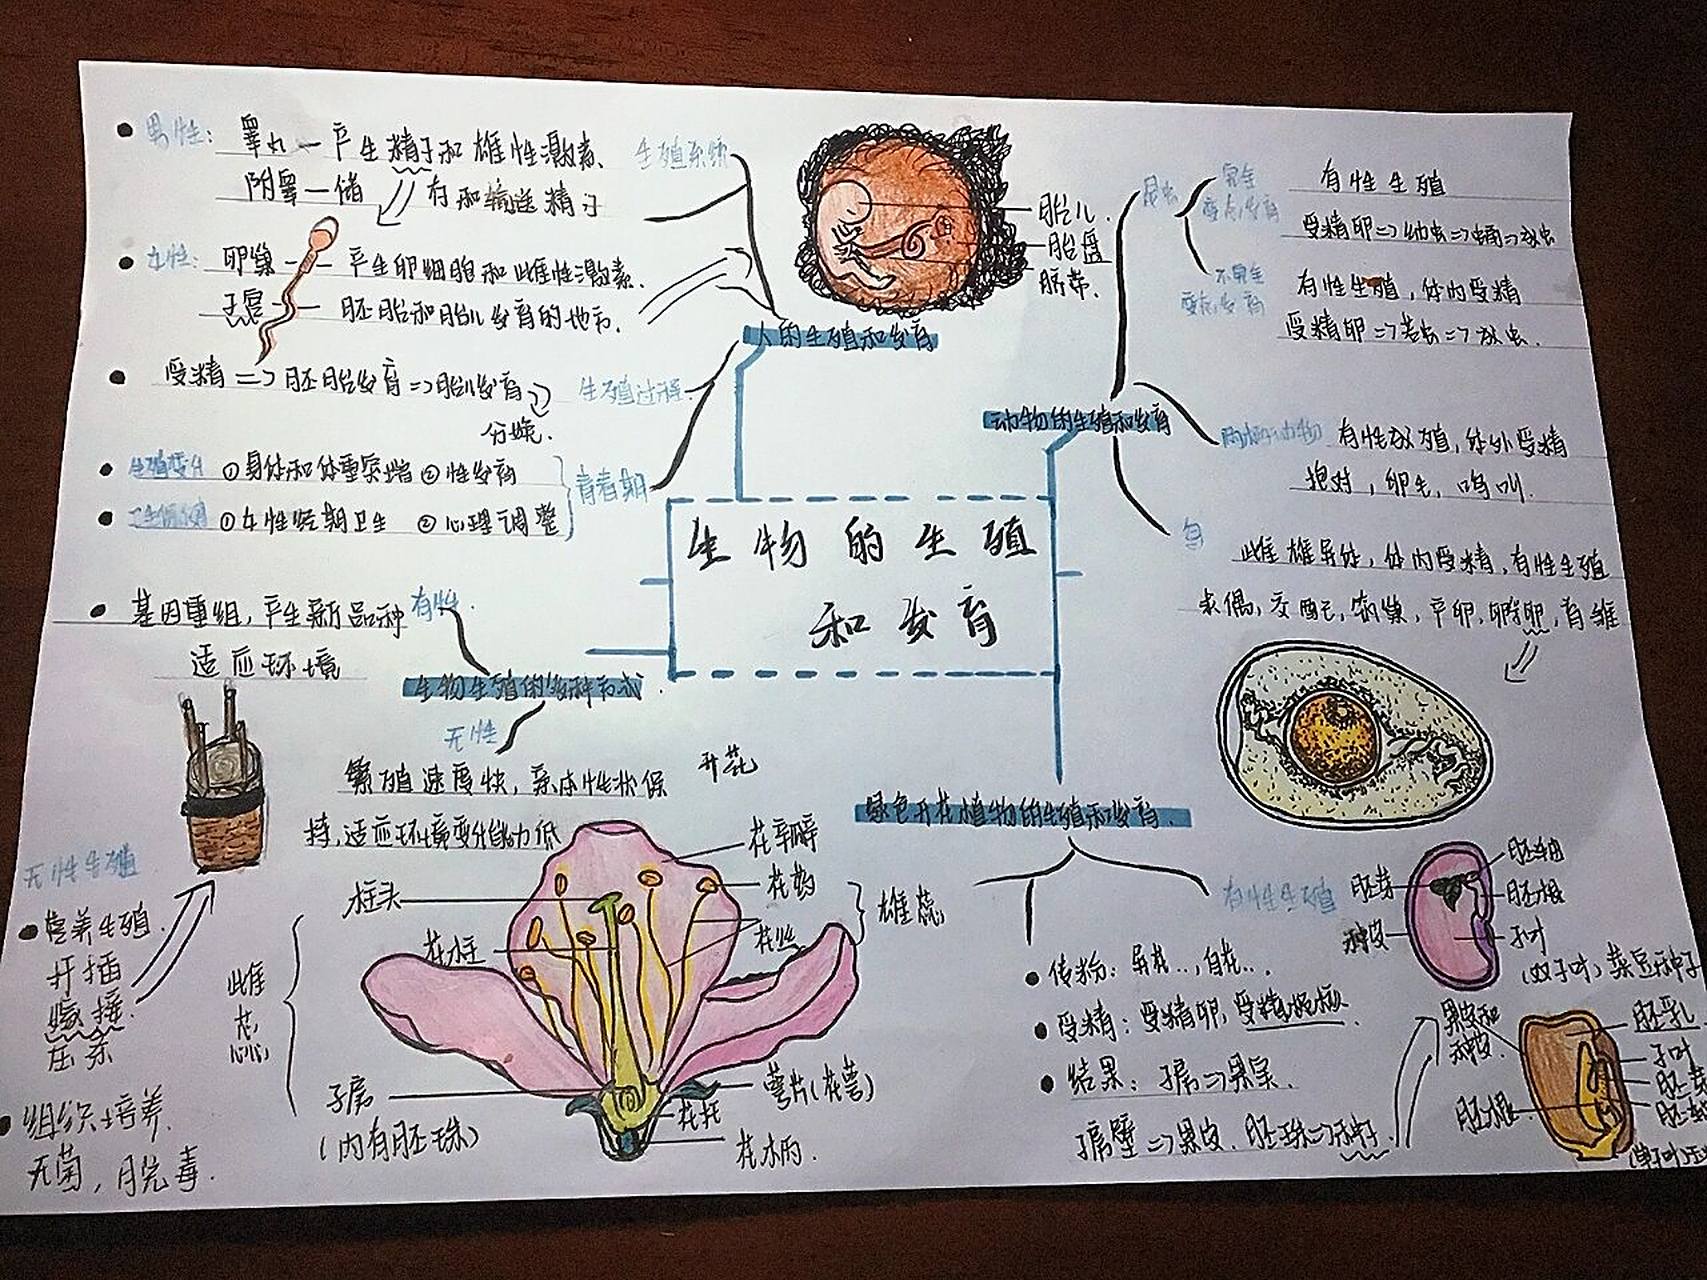 生物的生殖
和发育
人的生殖和发育
生殖系统
男性：睾丸—产生精子和雄性激素、
附睾—储存和输送精子
女性：卵巢——产生卵细胞和雌性激素.
子宫——胚胎和胎儿发育的地方.
生殖过程
受精=>胚胎发育=>胎儿发育
分娩.
青春期
①身体和体重突增 ②性发育
①女性经期卫生 ②心理调整
胎儿.
胎盘
脐带.
动物的生殖和发育
昆虫
完全
变态发育
有性生殖
受精卵=>幼虫=>蛹=>成虫
不完全
变态发育
有性生殖，体内受精
受精卵=>若虫=>成虫.
两栖动物
体外受精
抱对，卵生，鸣叫.
鸟
雌雄异体，体内受精，有性生殖
求偶，交配，筑巢，产卵，孵卵，育雏
生物生殖的多种方式.
有性.
基因重组，产生新品种
适应环境
无性
繁殖速度快，亲本性状保
持，适应环境变化能力低
无性生殖
营养生殖.
扦插
嫁接.
压条
组织培养.
无菌，脱毒.
开花
花瓣
花药
花丝
雄蕊
柱头
花柱
雌
蕊
子房
(内有胚珠)
萼片(花萼)
花托
花柄.
绿色开花植物的生殖和发育.
有性生殖
传粉：异花..，自花..
受精：受精卵，受精极核
结果：子房=>果实.
子房壁=>果皮.胚珠=>种子.
胚轴
胚芽
胚根
种皮
子叶
(双子叶)菜豆种子
果皮和
种皮.
胚乳
子叶
胚芽
胚轴
胚根